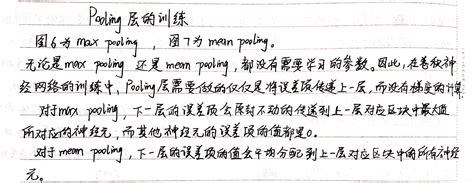 Pooling 层的训练
图6为max pooling，图7为mean pooling。
无论是max pooling 还是 mean pooling，都没有需要学习的参数。因此，在卷积神
经网络的训练中，Pooling层需要做的仅仅是将误差项传递上一层，而没有梯度的计算
对于max pooling，下一层的误差项会原封不动的传递到上一层对应区块中最大值
所对应的神经元，而其他神经元的误差项的值都是0。
对于mean pooling，下一层的误差项的值会平均分配到上一层对应区块中的所有神经
元。